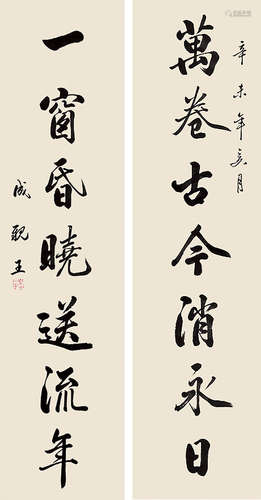 辛未年亥月
萬卷古今消永日
一窗昏曉送流年
成親王